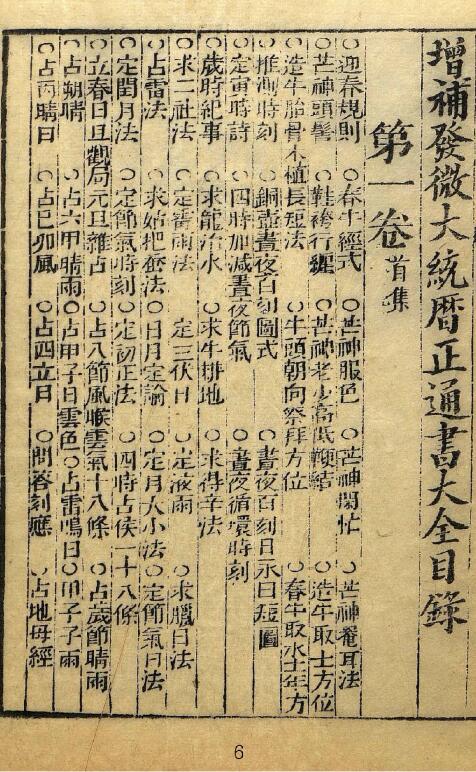 增補發微大統曆正通書大全目錄
第一卷 首集
○迎春規則 ○春牛經式 ○芒神服色 ○芒神閑忙 ○芒神罨耳法
○芒神頭髻 ○鞋袴行纏 ○芒神老少高低鞭結 ○造牛取土方位
○造牛胎骨木植長短法 ○牛頭朝向祭拜方位 ○春牛取水土年方
○推測時刻 ○銅壺晝夜百刻圖式 ○晝夜百刻日永日短圖
○定寅時詩 ○四時加減晝夜節氣 ○晝夜循環時刻
○歲時紀事 ○求龍治水 ○求牛耕地 ○求得辛法
○求二社法 ○定霉雨法 定三伏日 ○定液雨 ○求臘日法
○占雷法 ○求姑把蚕法 ○日月定論 ○定月大小法 ○定節氣日法
○定閏月法 ○定節氣時刻 ○定初正法 ○四時占侯一十八條
○立春日旦觀局元旦雜占 ○占八節風喉雲氣十八條 ○占歲節晴雨
○占朔晴 ○占六甲晴雨 ○占甲子日雲色 ○占雷鳴日 ○甲子子雨
○占丙晴日 ○占巳卯風 ○占四立日 ○問答刻應 ○占地母經
6